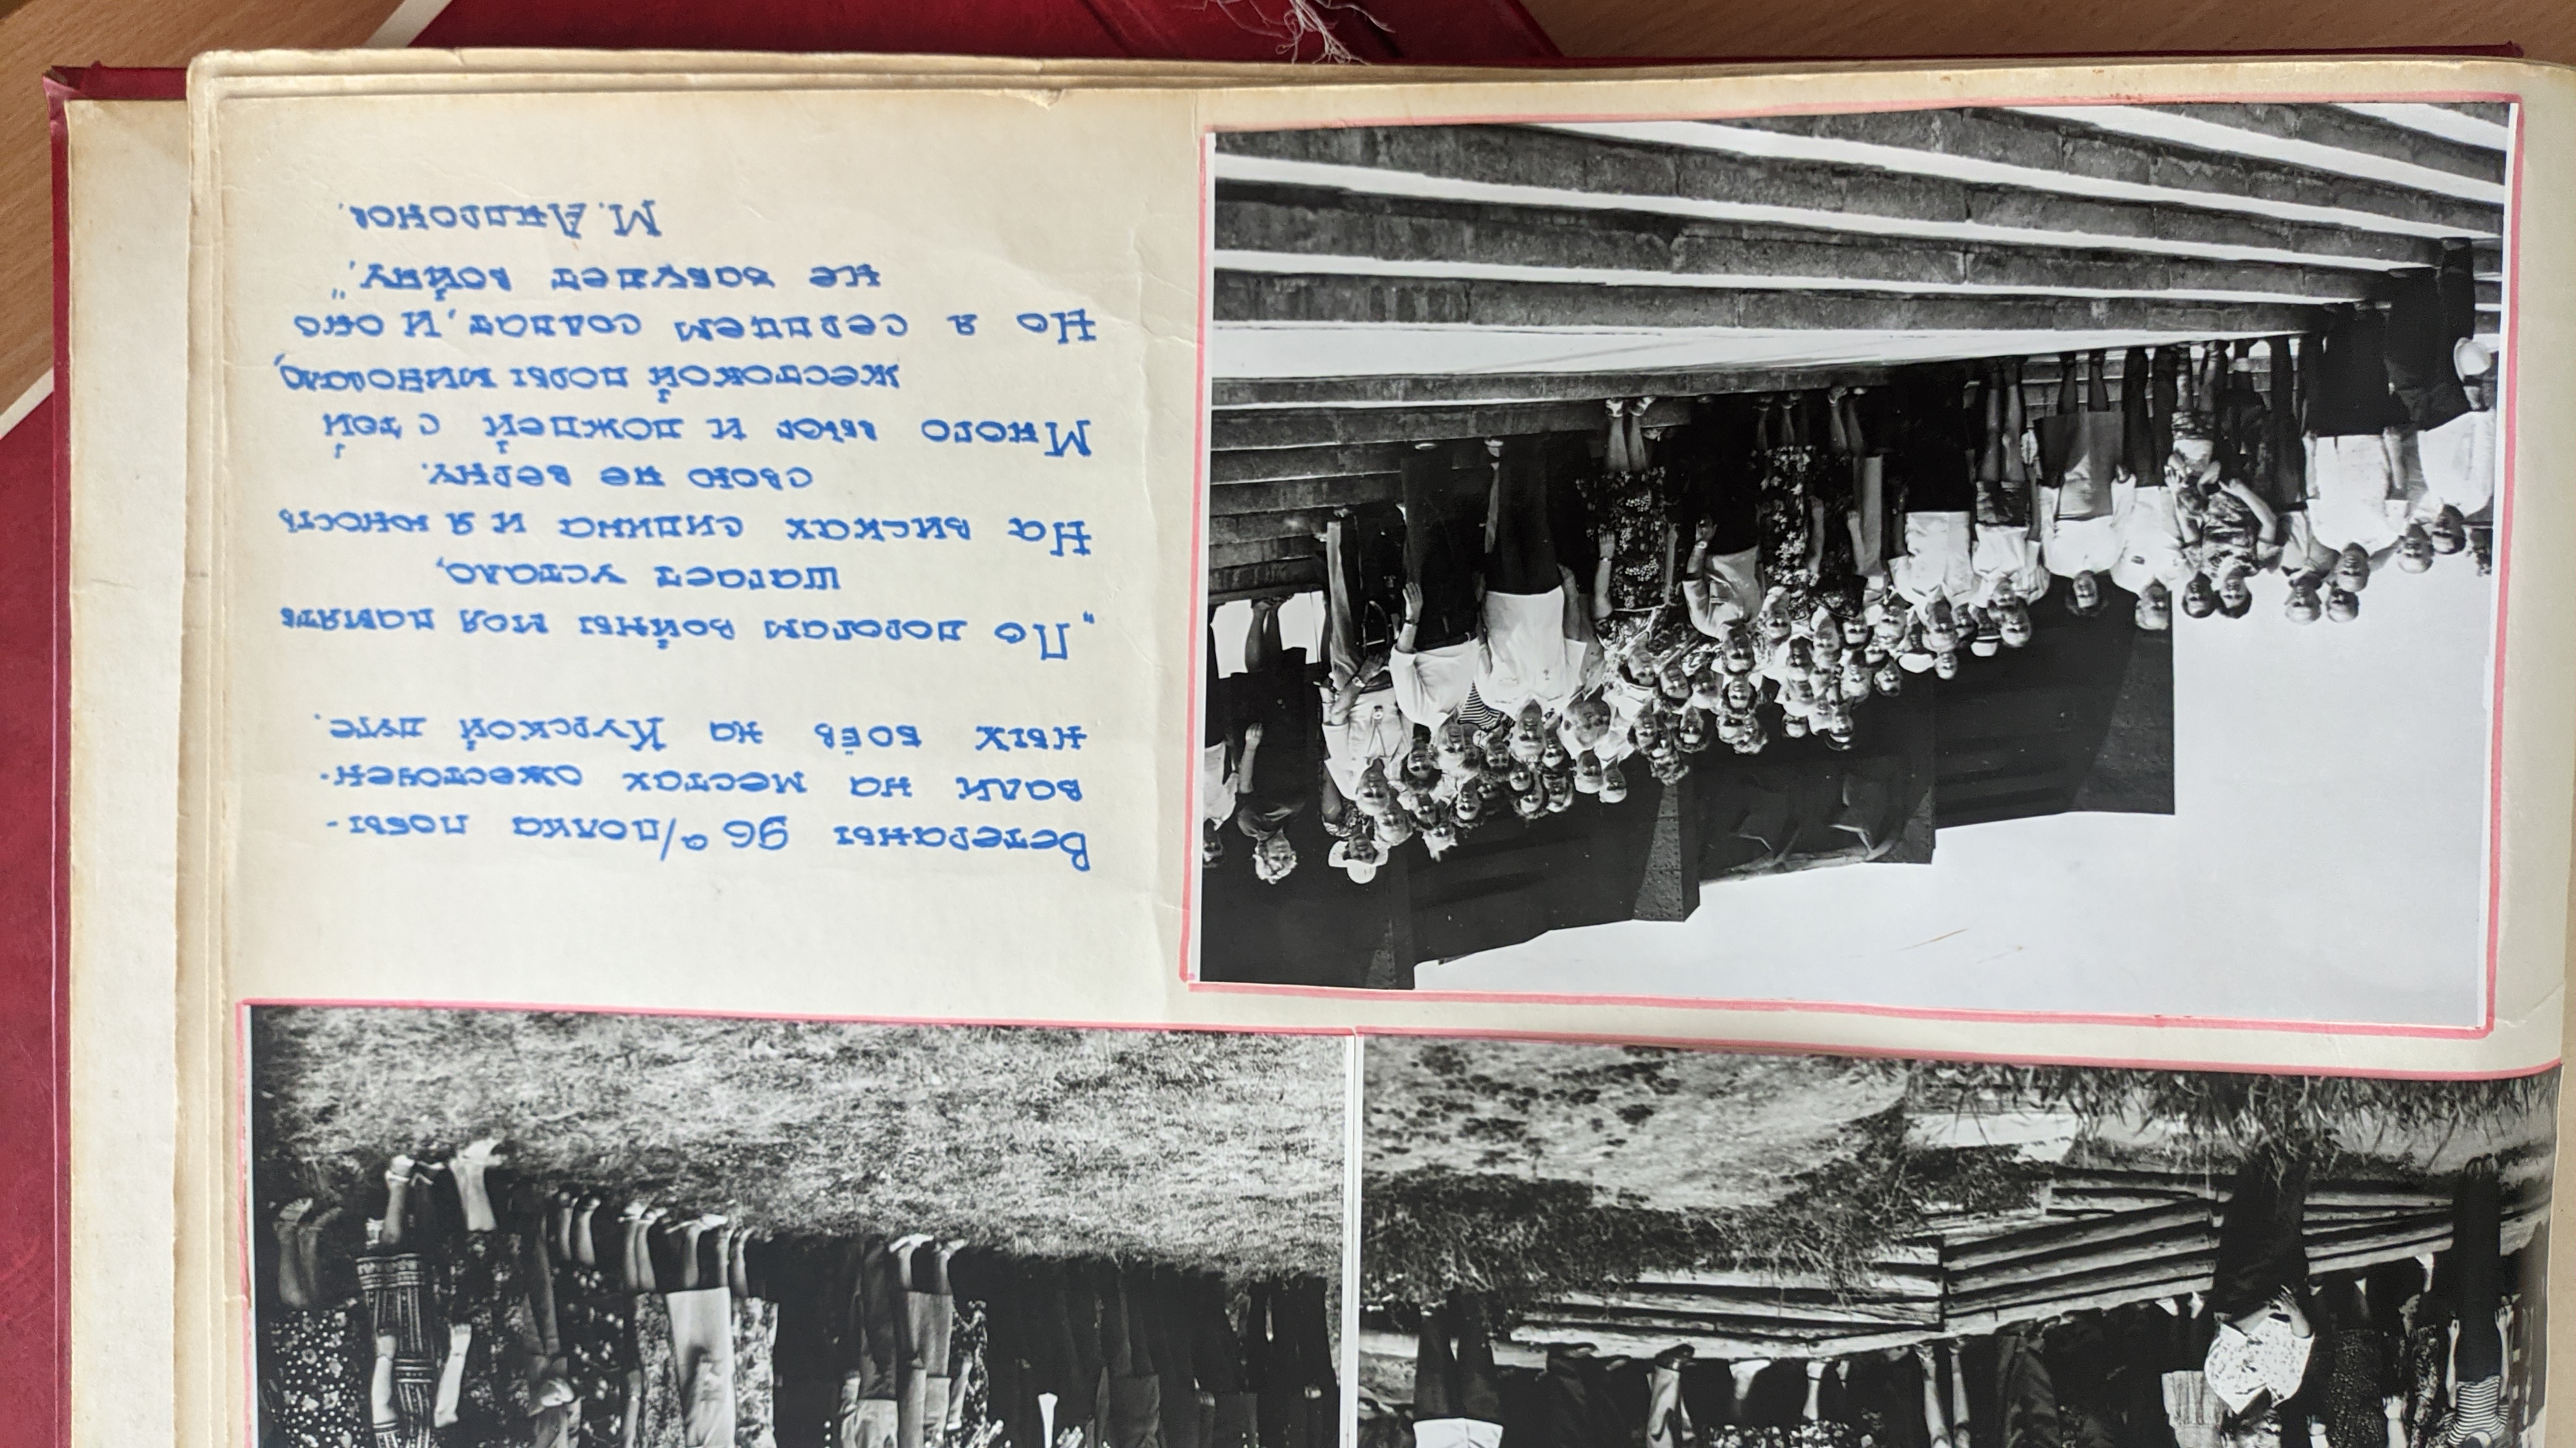 Ветераны 96 г/полка побы-
вали на местах ожесточен-
ных боёв на Курской дуге.
"По дорогам войны моя память
шагает устало,
На висках седина и я юность
свою не верну.
Много вьюг и дождей с той
жестокой поры миновало,
Но я сердцем солдат, и оно
не забудет войну."
М. Андронов.